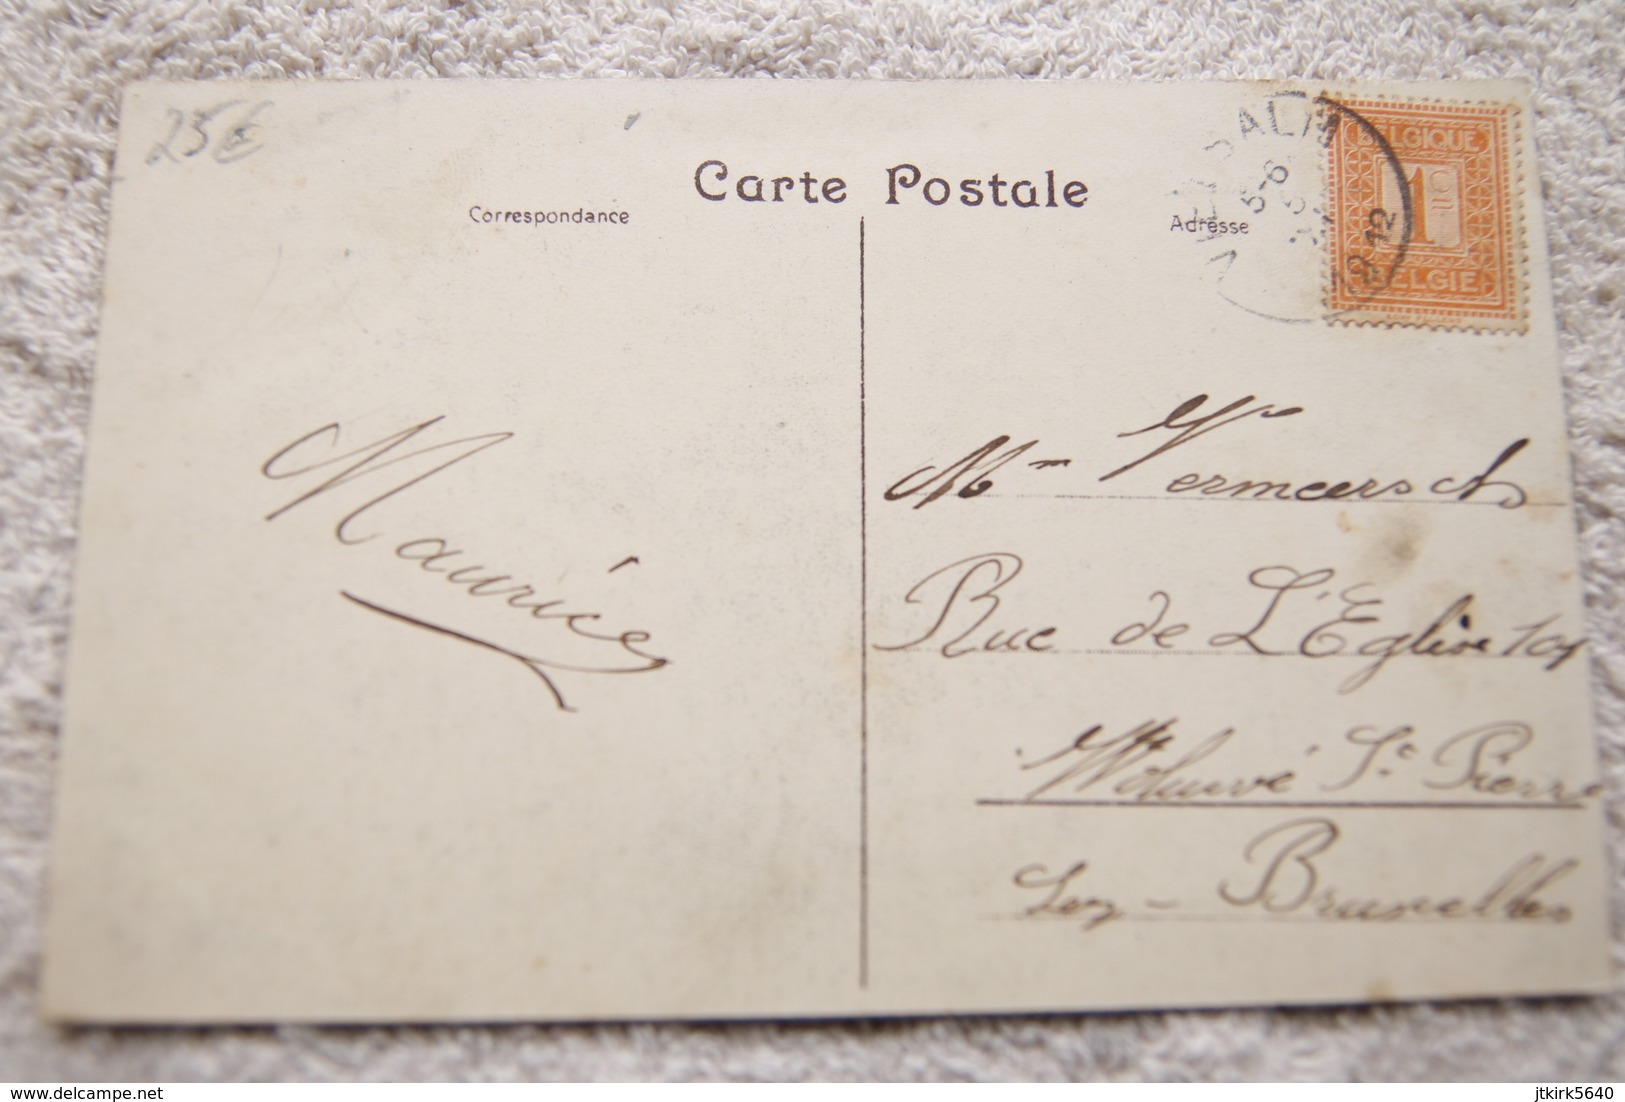 25€
Carte Postale
Correspondance
Adresse
BELGIQUE
1
BELGIE
5-6
1912
Maurice
Mm Vermeersch
Rue de L'Eglise
Woluwé St Pierre
Lez - Bruxelles
delcampe.net
jtkirk5640